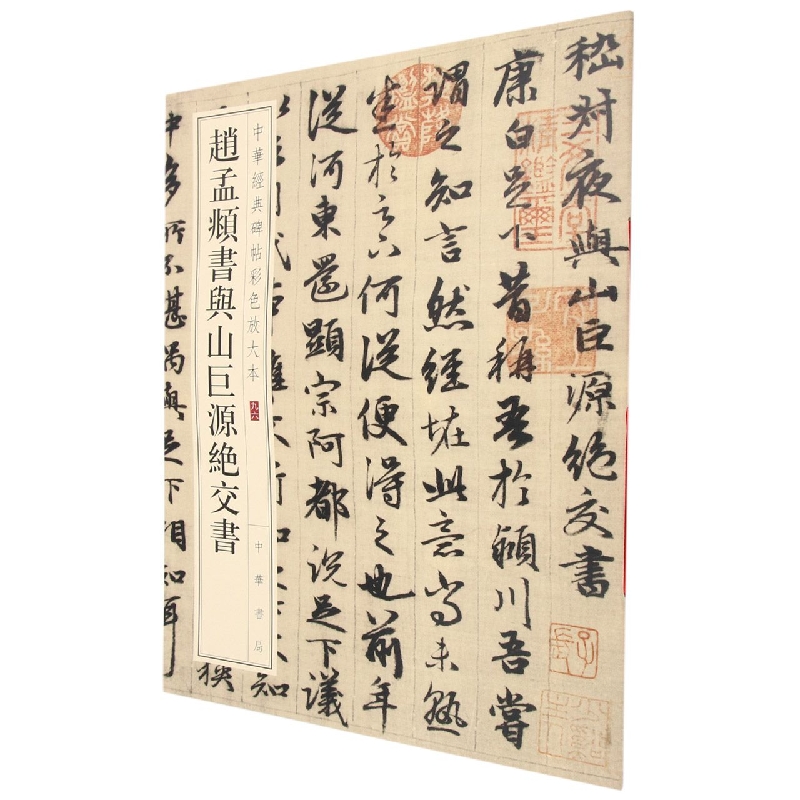 嵇叔夜與山巨源絶交書
康白足下昔稱吾於潁川吾嘗
謂之知言然經怪此意尚未熟
悉於足下何從便得之也前年
從河東還顯宗阿都説足下議
中華經典碑帖彩色放大本
九六
中華書局
趙孟頫書與山巨源絶交書
中多所不堪偶與足下相知耳